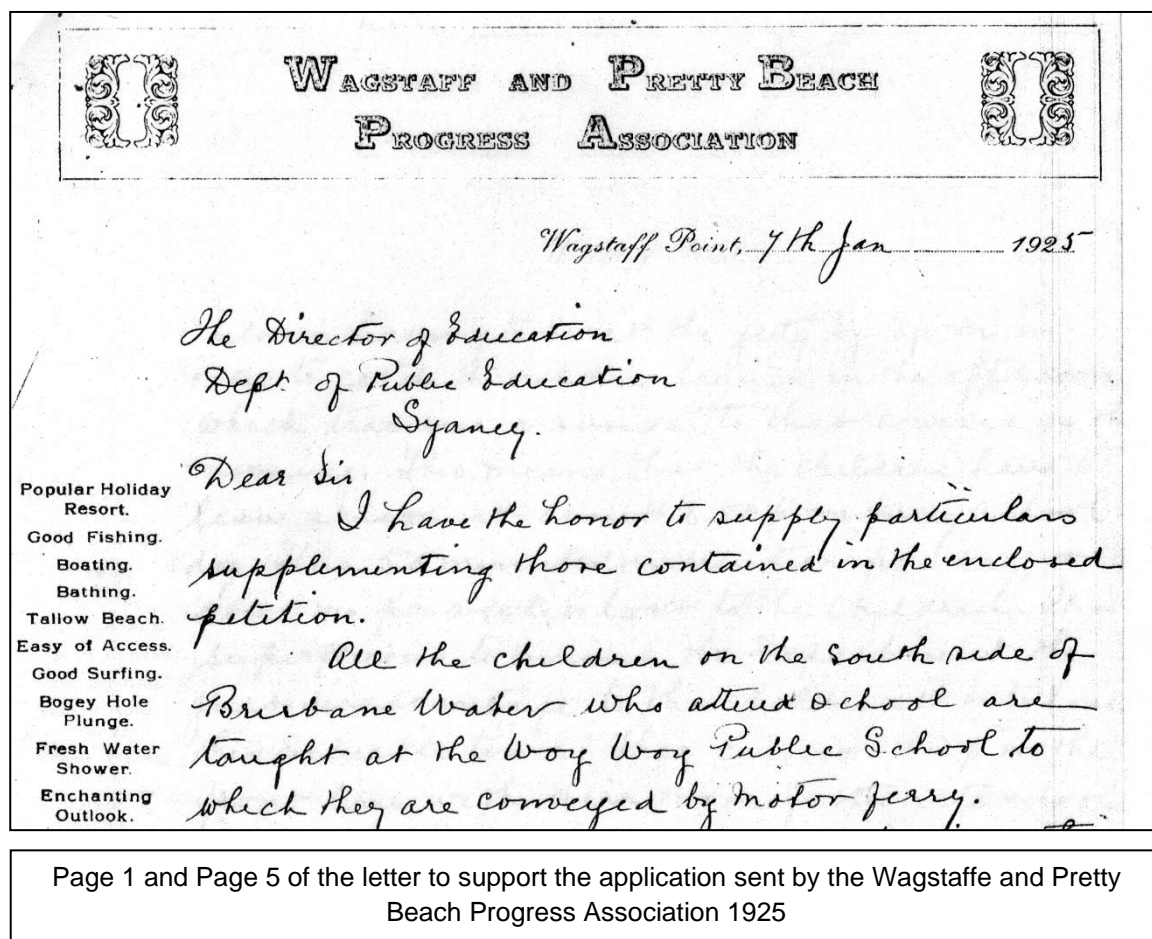 WAGSTAFF AND PRETTY BEACH
PROGRESS ASSOCIATION
Wagstaff Point, 7th Jan 1925
The Director of Education
Dept. of Public Education
Sydney.
Dear Sir
I have the honor to supply particulars
supplementing those contained in the enclosed
petition.
All the children on the South side of
Brisbane Water who attend School are
taught at the Woy Woy Public School to
which they are conveyed by Motor ferry.
Popular Holiday
Resort.
Good Fishing.
Boating.
Bathing.
Tallow Beach.
Easy of Access.
Good Surfing.
Bogey Hole
Plunge.
Fresh Water
Shower.
Enchanting
Outlook.
Page 1 and Page 5 of the letter to support the application sent by the Wagstaffe and Pretty
Beach Progress Association 1925